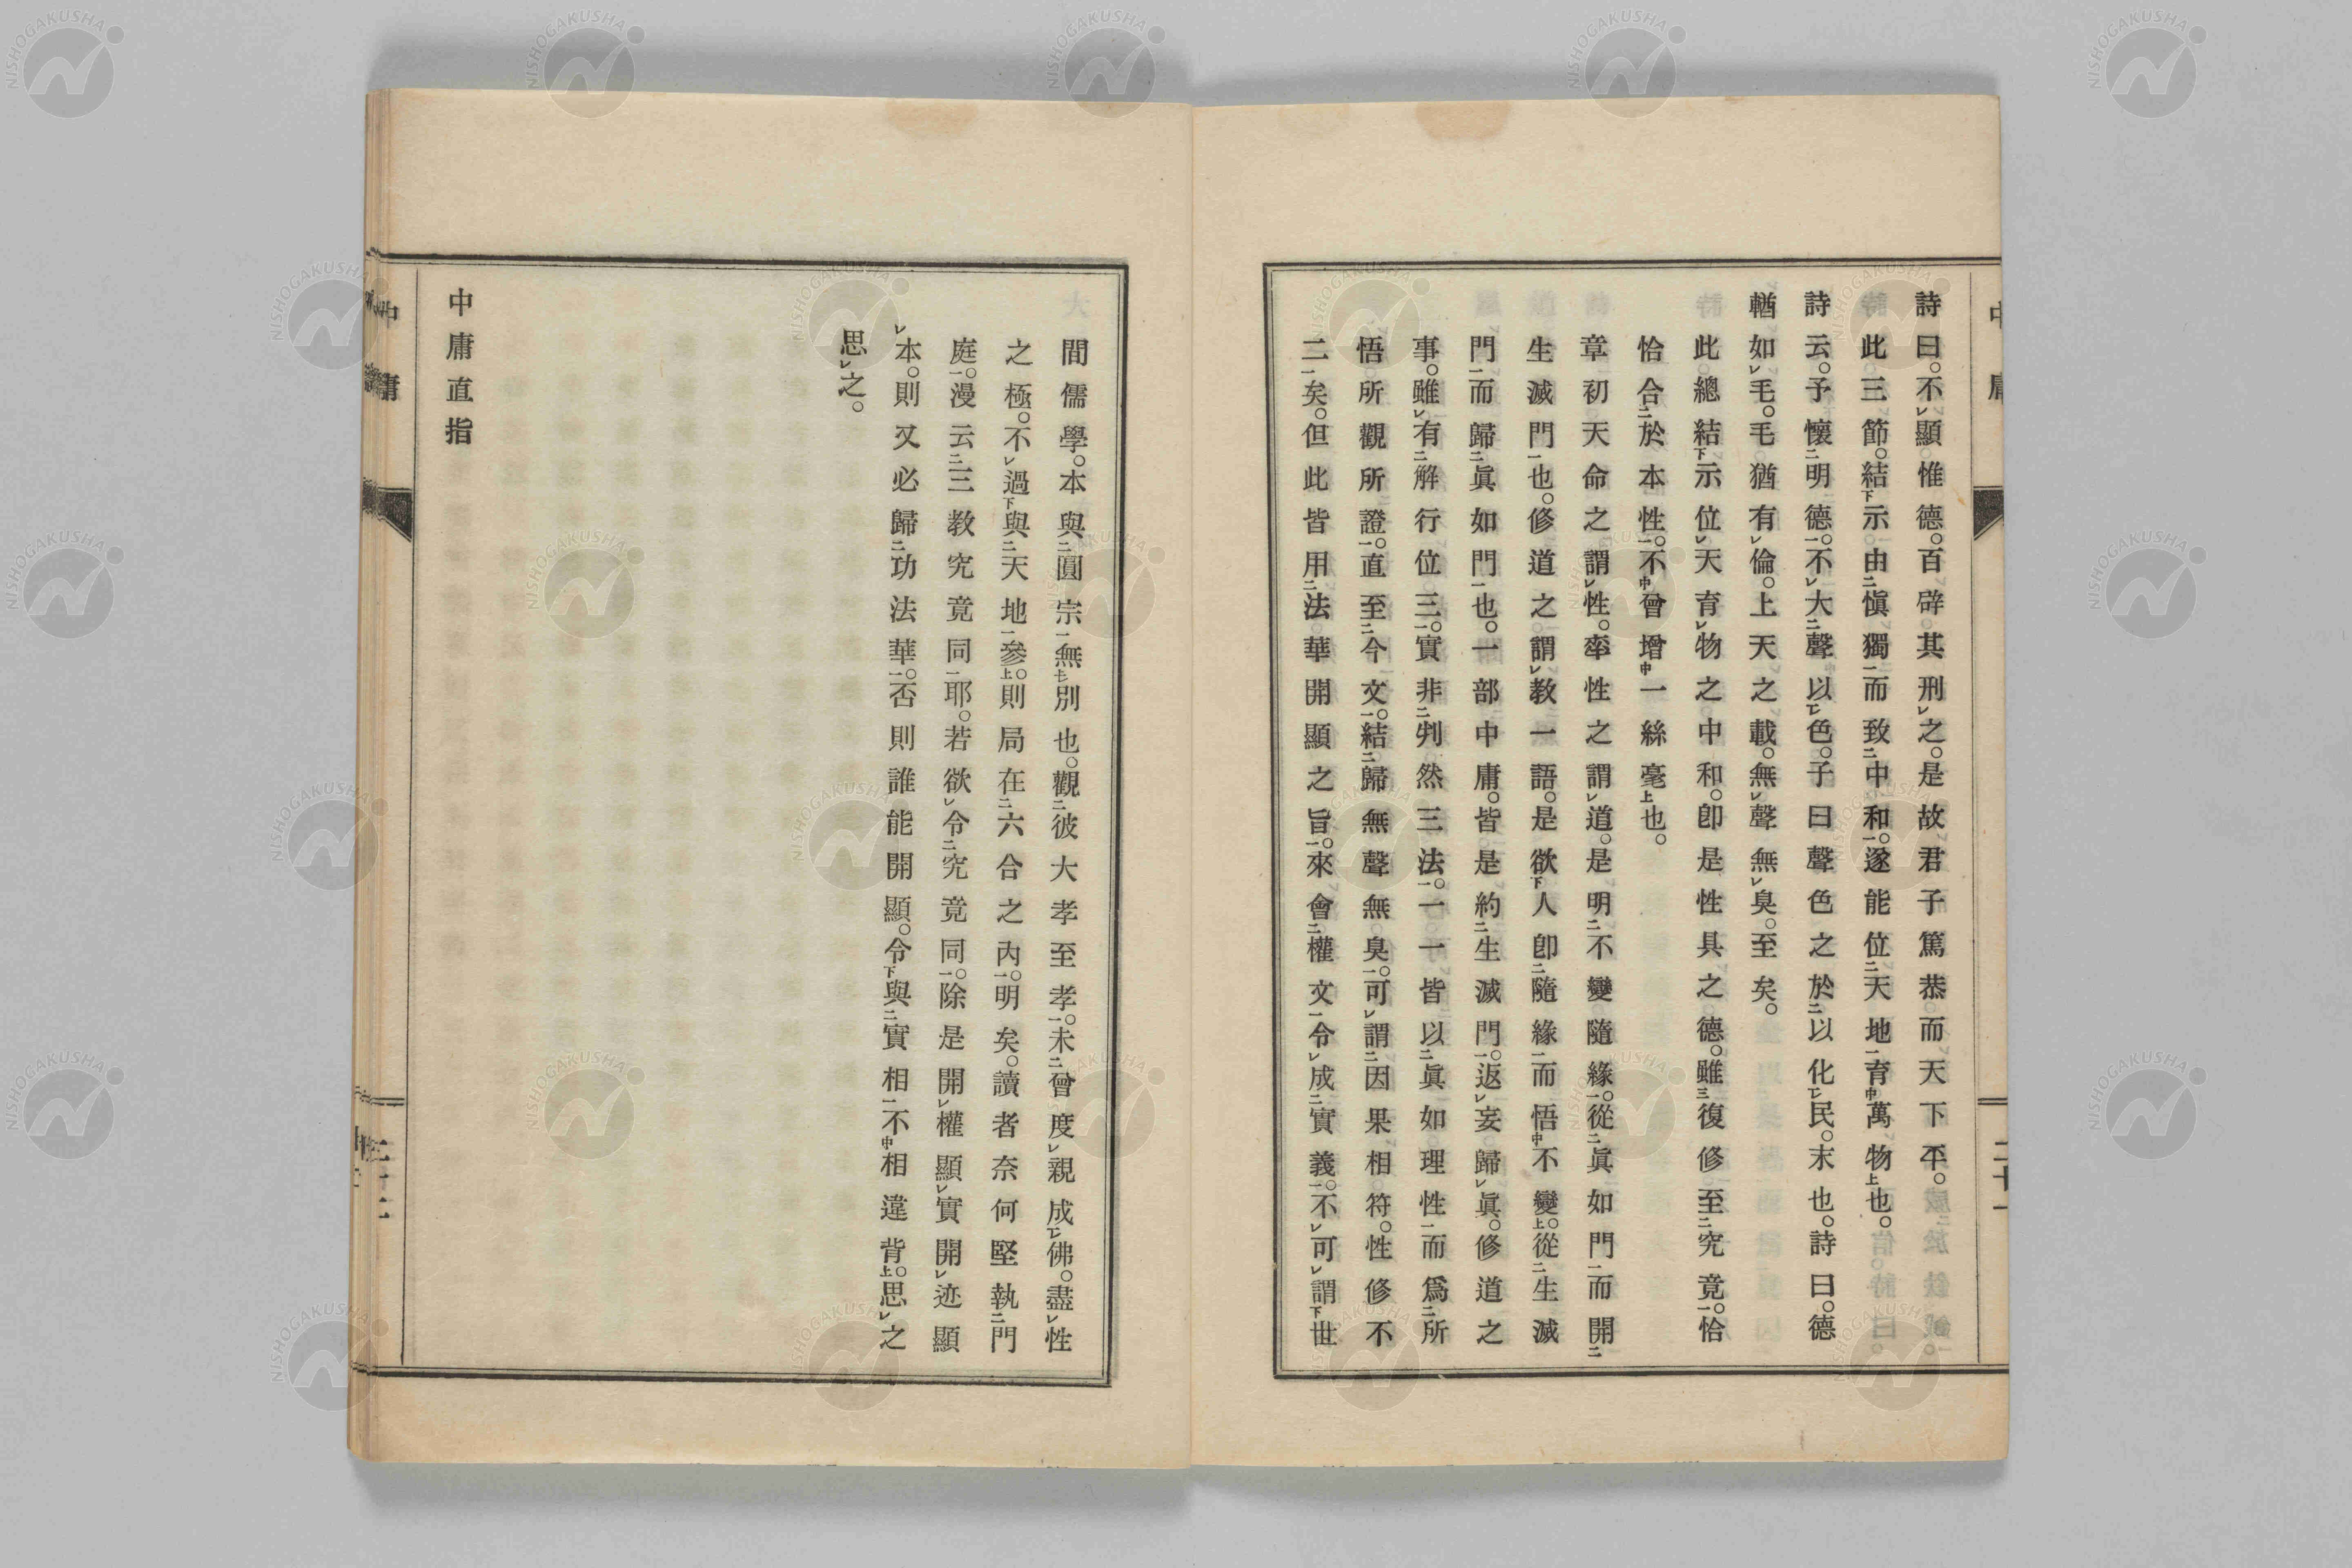 詩曰。不顯惟德。百辟其刑之。是故君子篤恭。而天下平。
此三節。結示由愼獨而致中和。遂能位天地育萬物也。
詩云。予懷明德。不大聲以色。子曰聲色之於以化民。末也。詩曰。德
輶如毛。毛猶有倫。上天之載。無聲無臭。至矣。
此總結示位天育物之中和。卽是性具之德。雖復修至究竟。恰
恰合於本性。不曾增一絲毫也。
章初天命之謂性。率性之謂道。是明不變隨緣。從眞如門而開
生滅門也。修道之謂教一語。是欲人卽隨緣而悟不變。從生滅
門而歸眞如門也。一部中庸。皆是約生滅門。返妄歸眞。修道之
事。雖有解行位三。實非判然三法。一一皆以眞如理性而爲所
悟所觀所證。直至今文。結歸無聲無臭。可謂因果相符。性修不
二矣。但此皆用法華開顯之旨。來會權文令成實義。不可謂世
間儒學。本與圓宗無別也。觀彼大孝至孝。未曾度親成佛。盡性
之極。不過與天地參。則局在六合之內。明矣。讀者奈何堅執門
庭。漫云三教究竟同耶。若欲令究竟同。除是開權顯實開迹顯
本。則又必歸功法華。否則誰能開顯。令與實相不相違背。思之
思之。
中庸直指
中庸
NISHOGAKUSHA